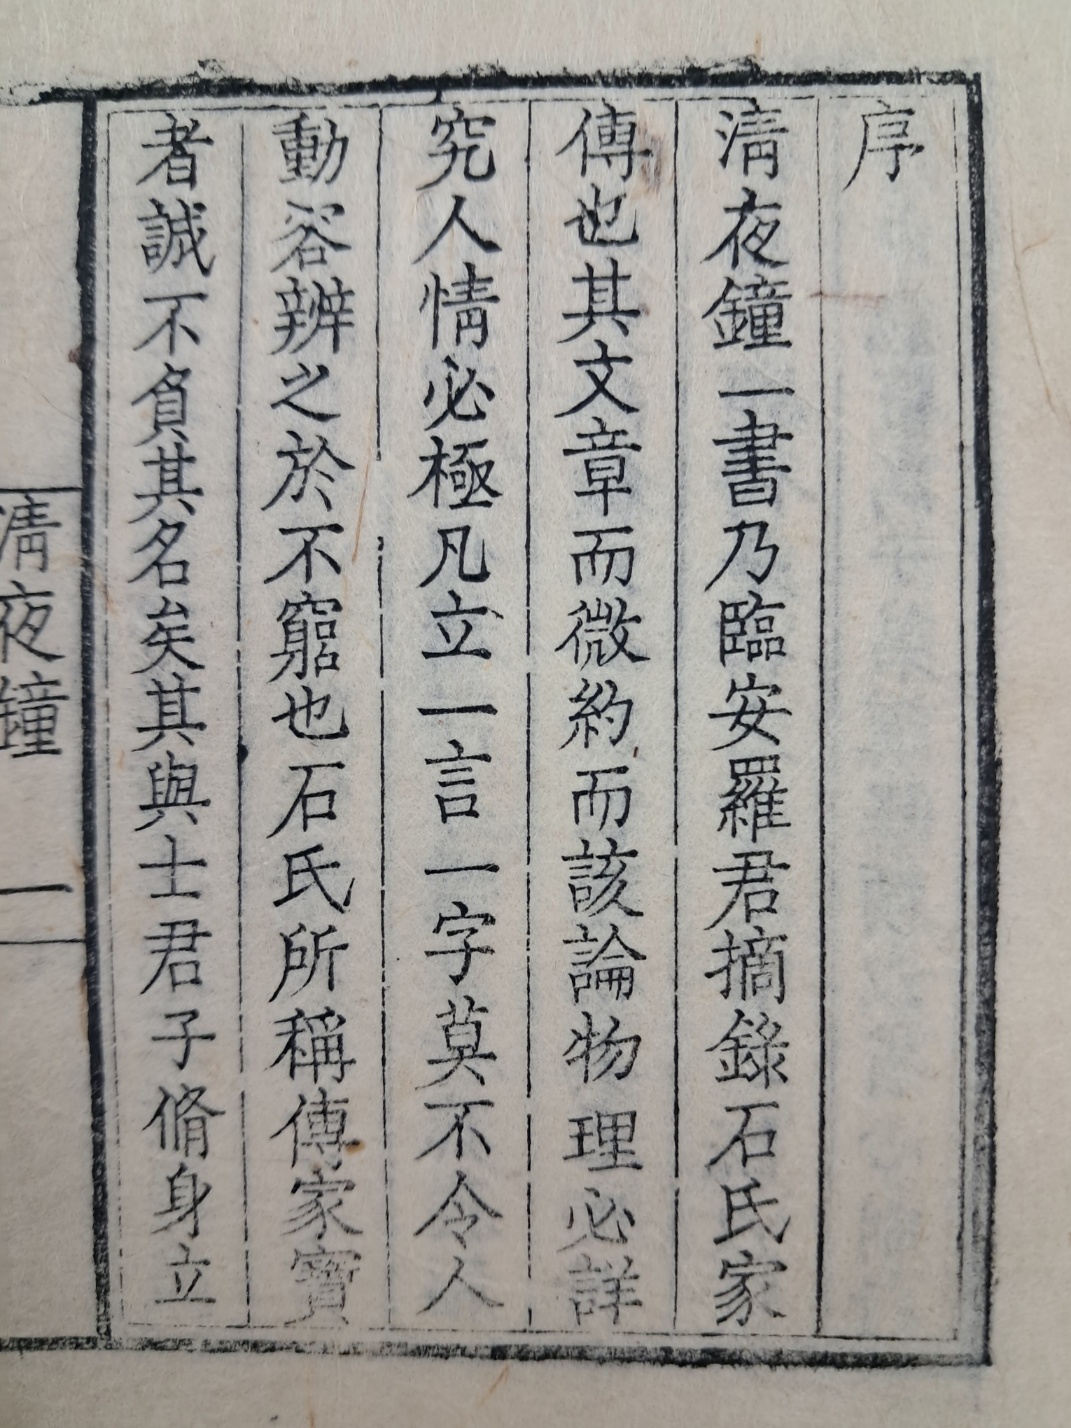 序
清夜鐘一書乃臨安羅君摘錄石氏家
傳也其文章而微約而該論物理必詳
究人情必極凡立一言一字莫不令人
動容辨之於不窮也石氏所稱傳家寶
者誠不負其名矣其與士君子脩身立
清夜鐘
一